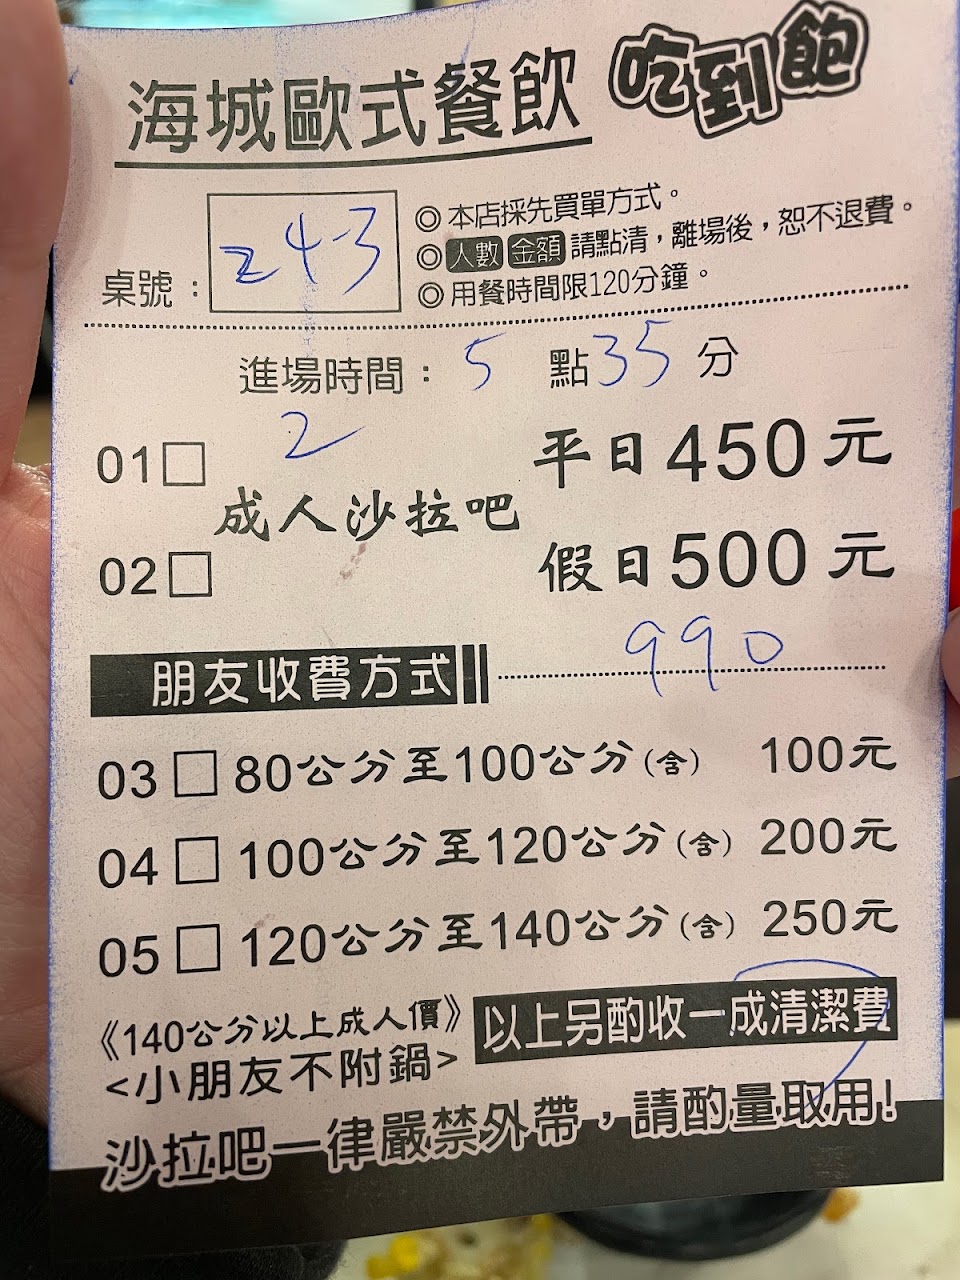 海城歐式餐飲 吃到飽
桌號：243
◎本店採先買單方式。
◎人數 金額 請點清，離場後，恕不退費。
◎用餐時間限120分鐘。
進場時間：5 點 35 分
2
01□ 平日450元
成人沙拉吧
02□ 假日500元
990
朋友收費方式
03□80公分至100公分(含) 100元
04□100公分至120公分(含) 200元
05□120公分至140公分(含) 250元
《140公分以上成人價》
以上另酌收一成清潔費
<小朋友不附鍋>
沙拉吧一律嚴禁外帶，請酌量取用!